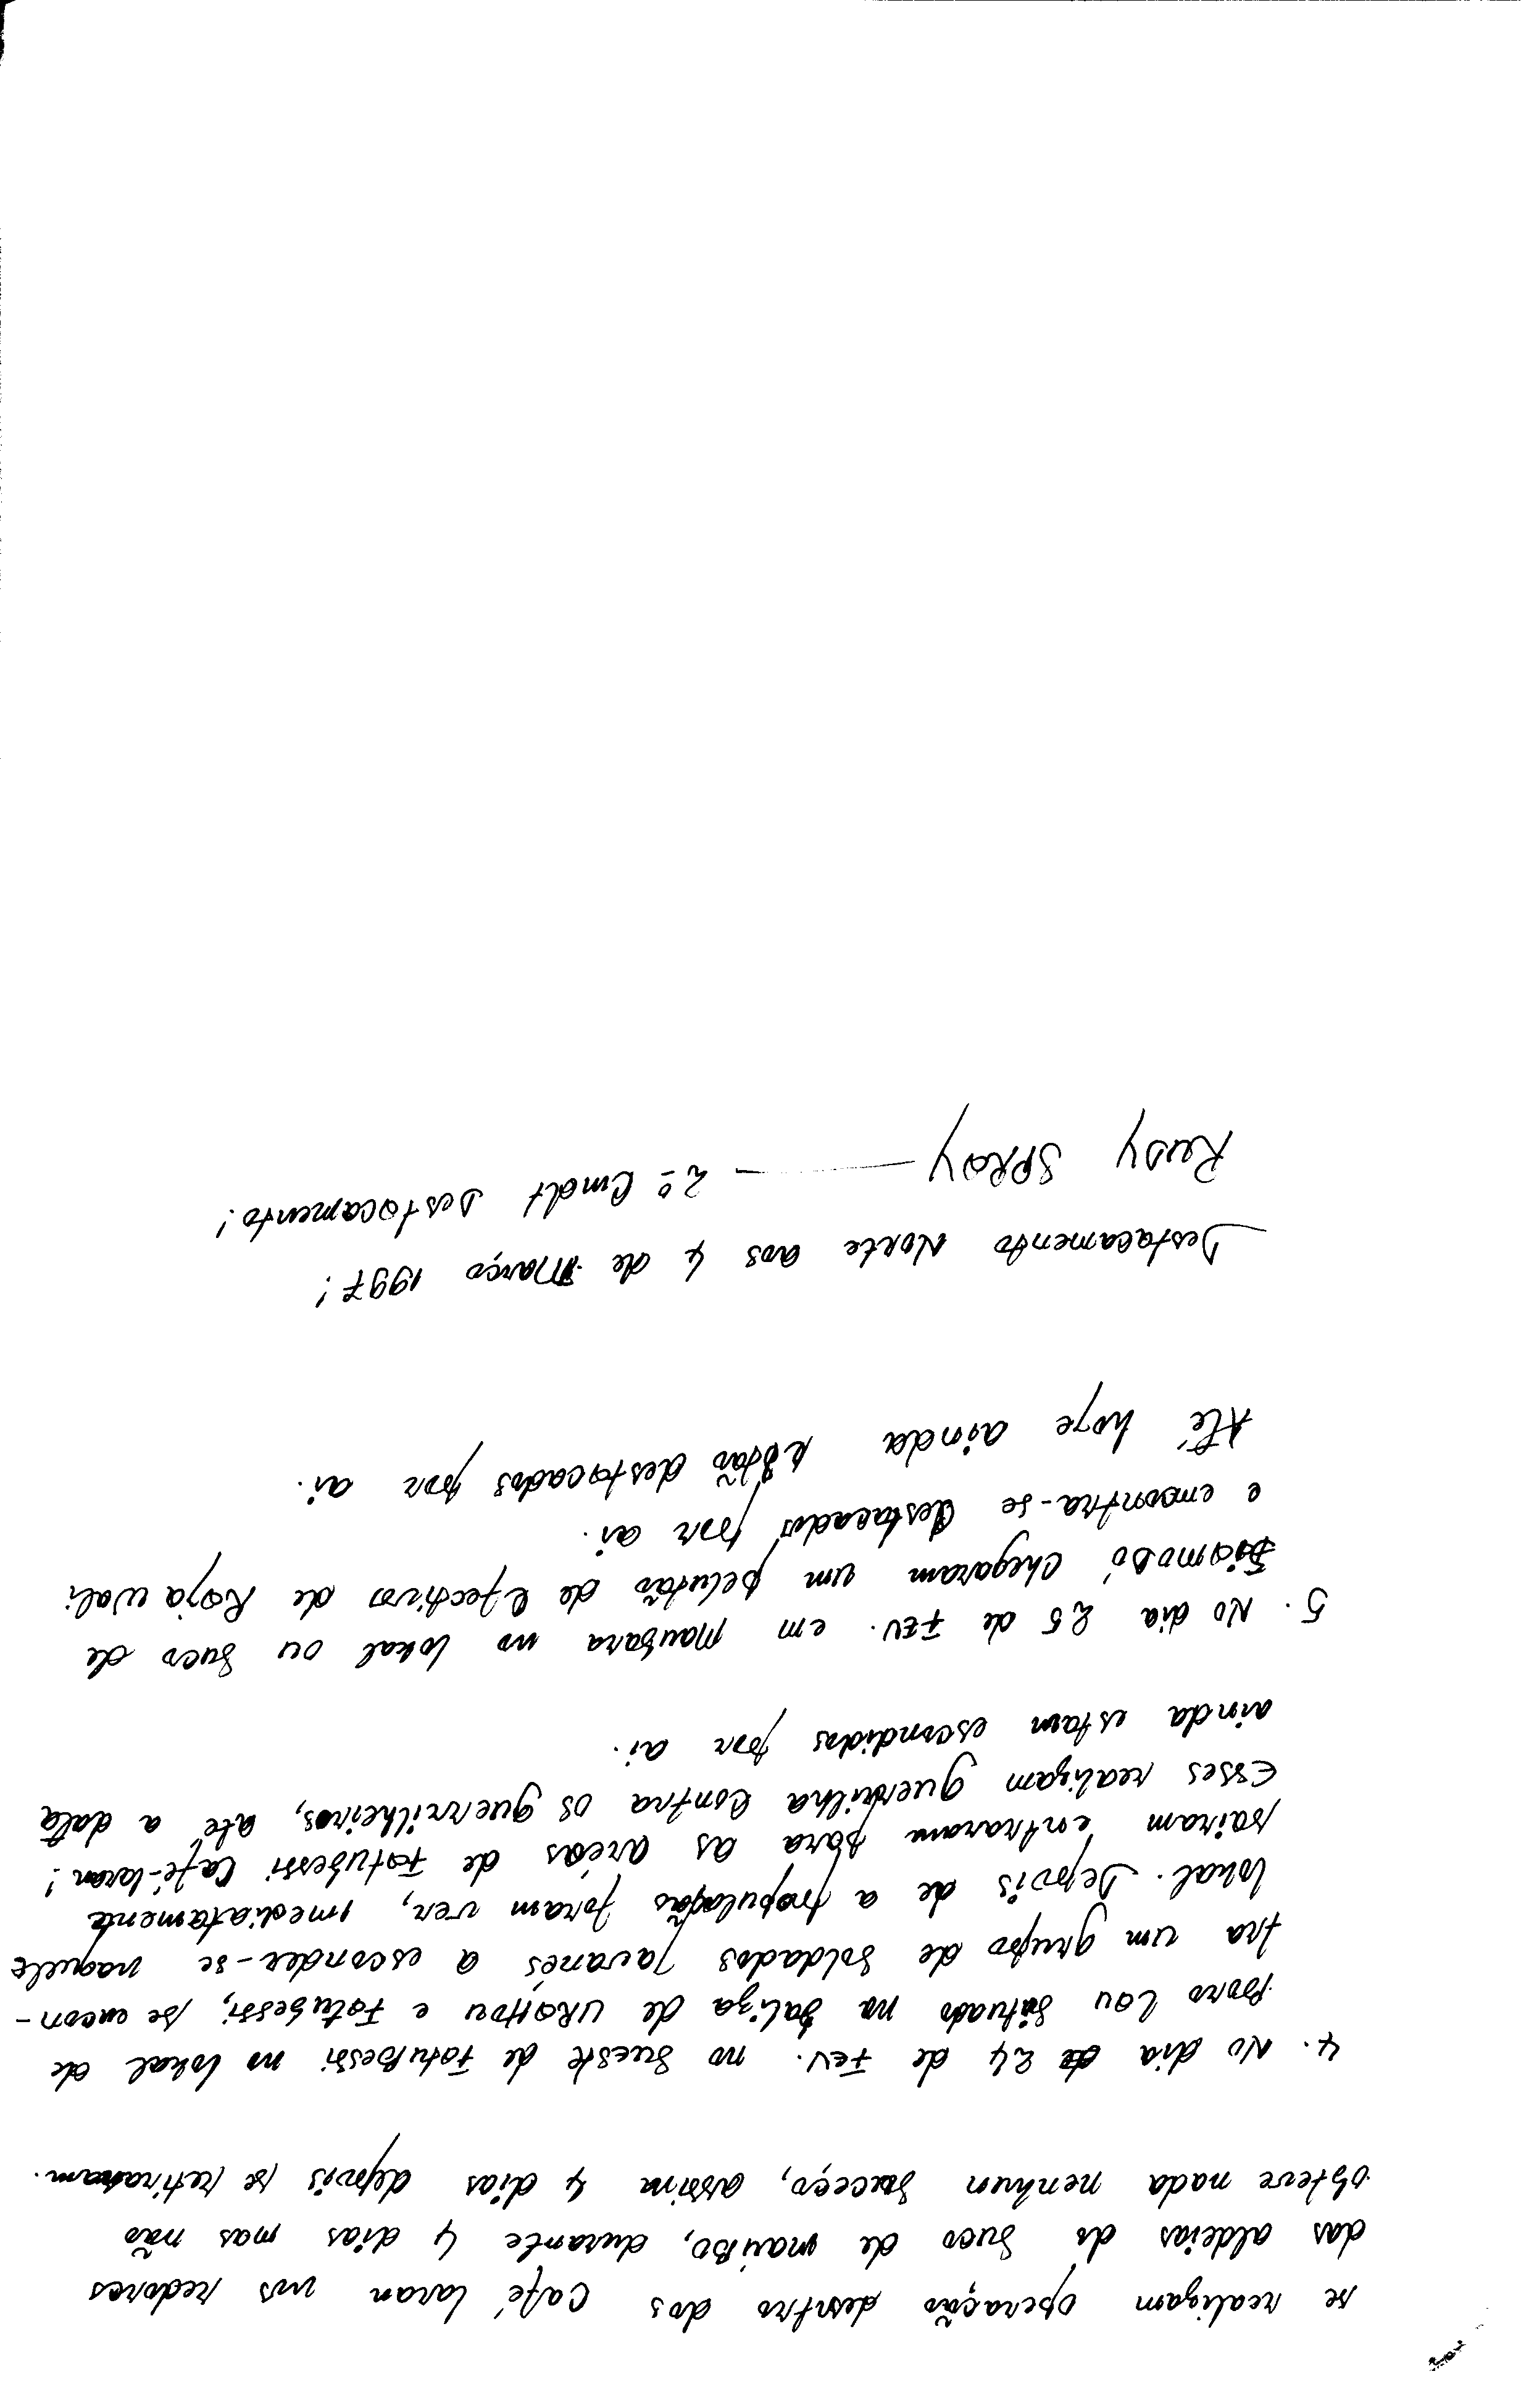 se realizam operação dentro dos Café laran nos redores
das aldeias do Suco de mauBO, durante 4 dias mas não
obteve nada nenhun Succeço, assim 4 dias depois se retiraram.
4. NO dia 24 de FEV. no Sueste de FotuBessi no lokal de
Poro Lou Situado na baliza de URAHOU e Fotubessi, se encon-
tra um grupo de Soldados Javanés a esconder-se naquele
lokal. Depois de a população foram ver, imediatamente
sairam entraram para as areas de Fotubessi Café-laran!
Esses realizam guerrilha Contra os guerrilheiros, até a data
ainda estam escondidos por ai.
5. NO dia 25 de FEV. em Maubara no lokal ou Suco de
chegaram um pelutão de efectivos de Rajawali
e encontra-se destacados por ai.
Até hoje ainda estão destacados por ai.
Destacamento Norte aos 4 de Março 1997!
2º Cmdt Destacamento!
RUDY SPRAY